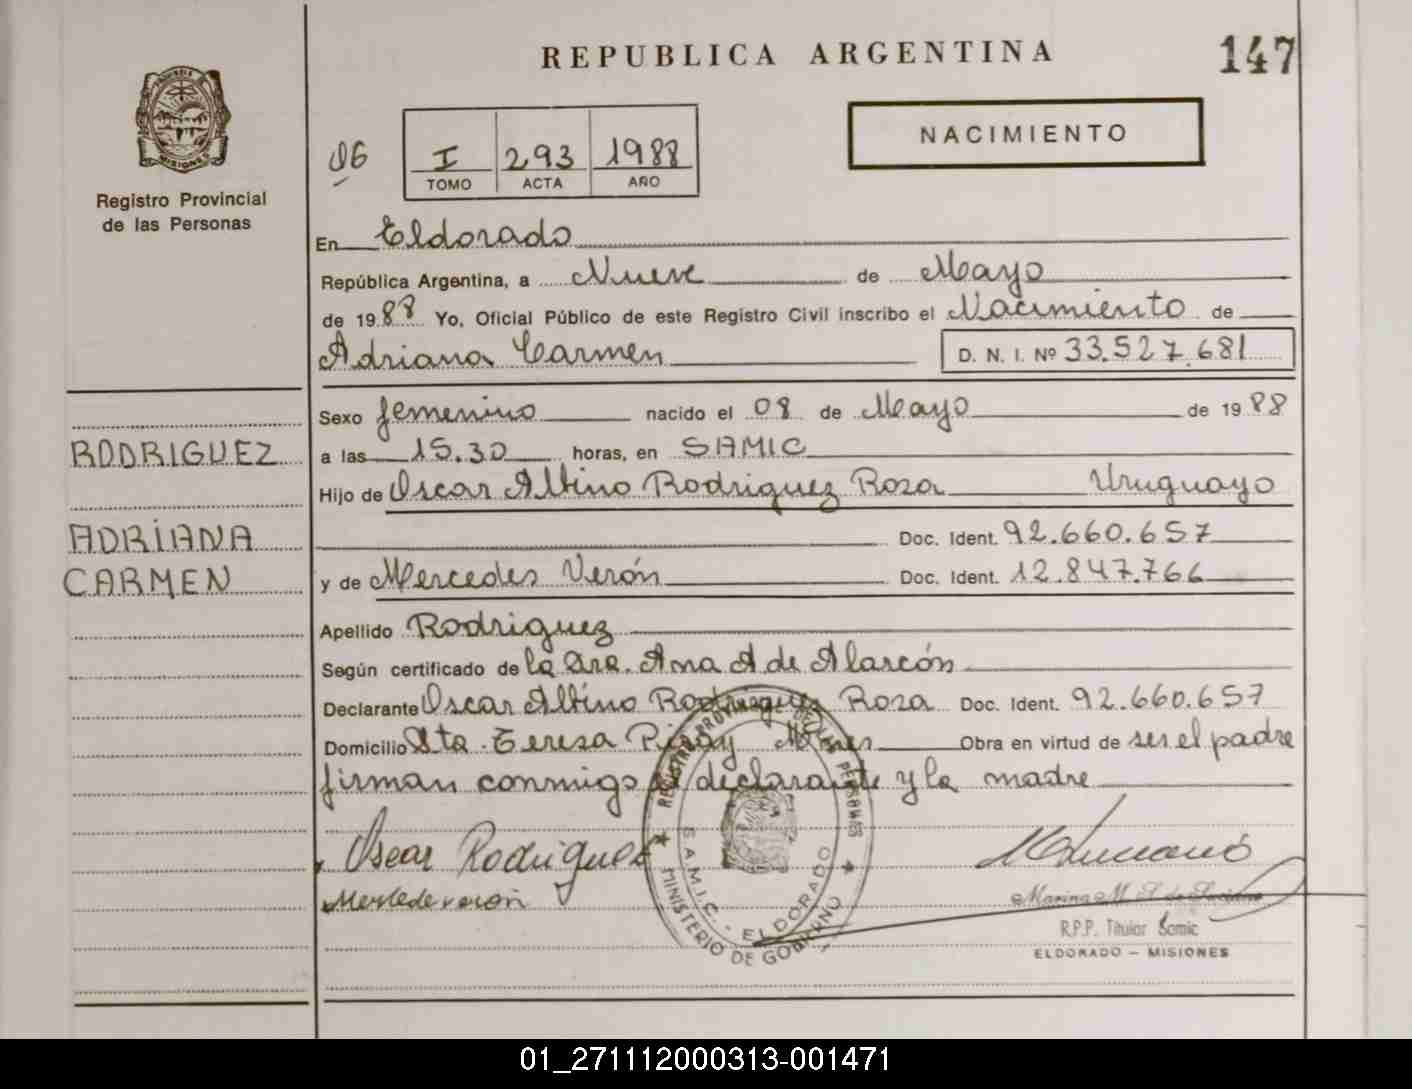 REPUBLICA ARGENTINA
147
MISIONES
Registro Provincial
de las Personas
06
I 293 1988
TOMO ACTA AÑO
NACIMIENTO
En Eldorado
República Argentina, a Nueve de Mayo
de 1988 Yo, Oficial Público de este Registro Civil inscribo el Nacimiento de
Adriana Carmen D. N. I. Nº 33.527.681
Sexo femenino nacido el 08 de Mayo de 1988
RODRIGUEZ
a las 15.30 horas, en SAMIC
Hijo de Oscar Albino Rodriguez Rosa Uruguayo
ADRIANA
Doc. Ident. 92.660.657
CARMEN
y de Mercedes Verón Doc. Ident. 12.847.766
Apellido Rodriguez
Según certificado de la Dra. Ana A de Alarcón
Declarante Oscar Albino Rodriguez Rosa Doc. Ident. 92.660.657
Domicilio Sta. Teresa Piray Mnes Obra en virtud de ser el padre
firman conmigo el declarante y la madre
Oscar Rodriguez
REGISTRO PROVINCIAL DE LAS PERSONAS
S.A.M.I.C. - ELDORADO
MINISTERIO DE GOBIERNO
Marina M.
R.P.P. Titular Samic
ELDORADO – MISIONES
01_271112000313-001471